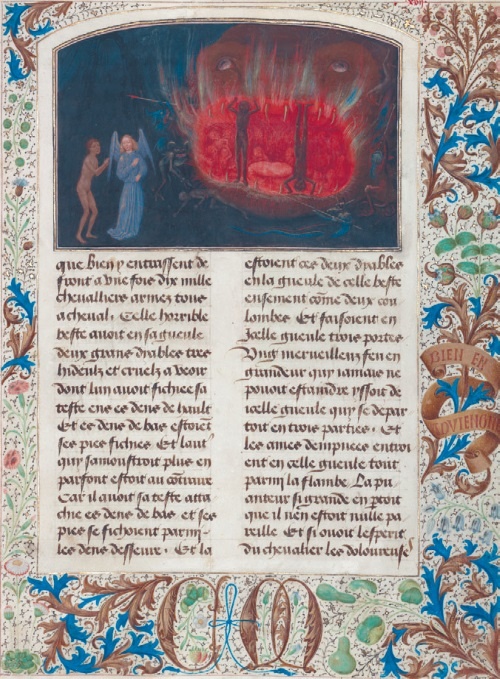 que Bien y entrassent de
front a vne fois dix mille
cheualliers armez tous
a cheual. Celle horrible
beste auoit en sa gueule
deux grans dyables tres
hideulz et cruelz a veoir
dont lun auoit fichee sa
teste ens es dens de hault
Et es dens de bas estoiet
ses pies fichies. Et laut
quy samonstroit plus en
parfont estoit au cōtraire
Car il auoit sa teste atta
chie es dens de bas et ses
pies se fichoient parmi
les dens desseure. Et la
estoient ces deux dyables
en la gueule de celle beste
ensement cōme deux cou
lombes. Et faisoient en
Jcelle gueule trois portes
Vng merueilleux feu en
grandeur quy iamais ne
pouoit estaindre yssoit de
icelle gueule quy se depar
toit en trois parties. Et
les ames dempnees entroi
ent en celle gueule tout
parmi la flambe. La pu
anteur si grande en ꝑtoit
que il nen estoit nulle pa
reille Et si ouoit lesperit
du cheualier les doloureuse
BIEN EN
CM